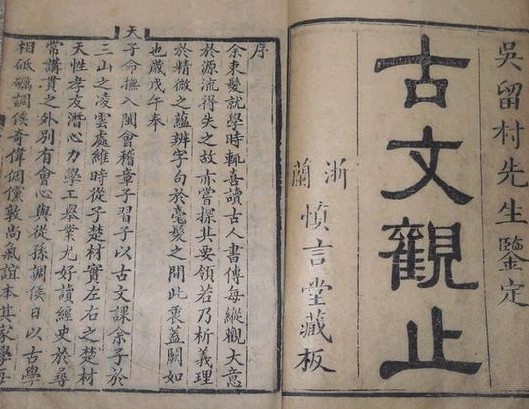 吳留村先生鑒定
古文觀止
浙
蘭
慎言堂藏板
序
余束髮就學時輒喜讀古人書傳每縱觀大意
於源流得失之故亦嘗探其要領若乃析義理
於精微之蘊辨字句於毫髮之間此衷蓋闕如
也歲戊午奉
天子命撫入閩會稽章子習子以古文課余子於
三山之凌雲處維時從子楚材實左右之楚材
天性孝友潛心力學工舉業尤好讀經史於尋
常講貫之外別有會心與從孫調侯日以古學
相砥礪調侯奇偉倜儻敦尚氣誼本其家學每